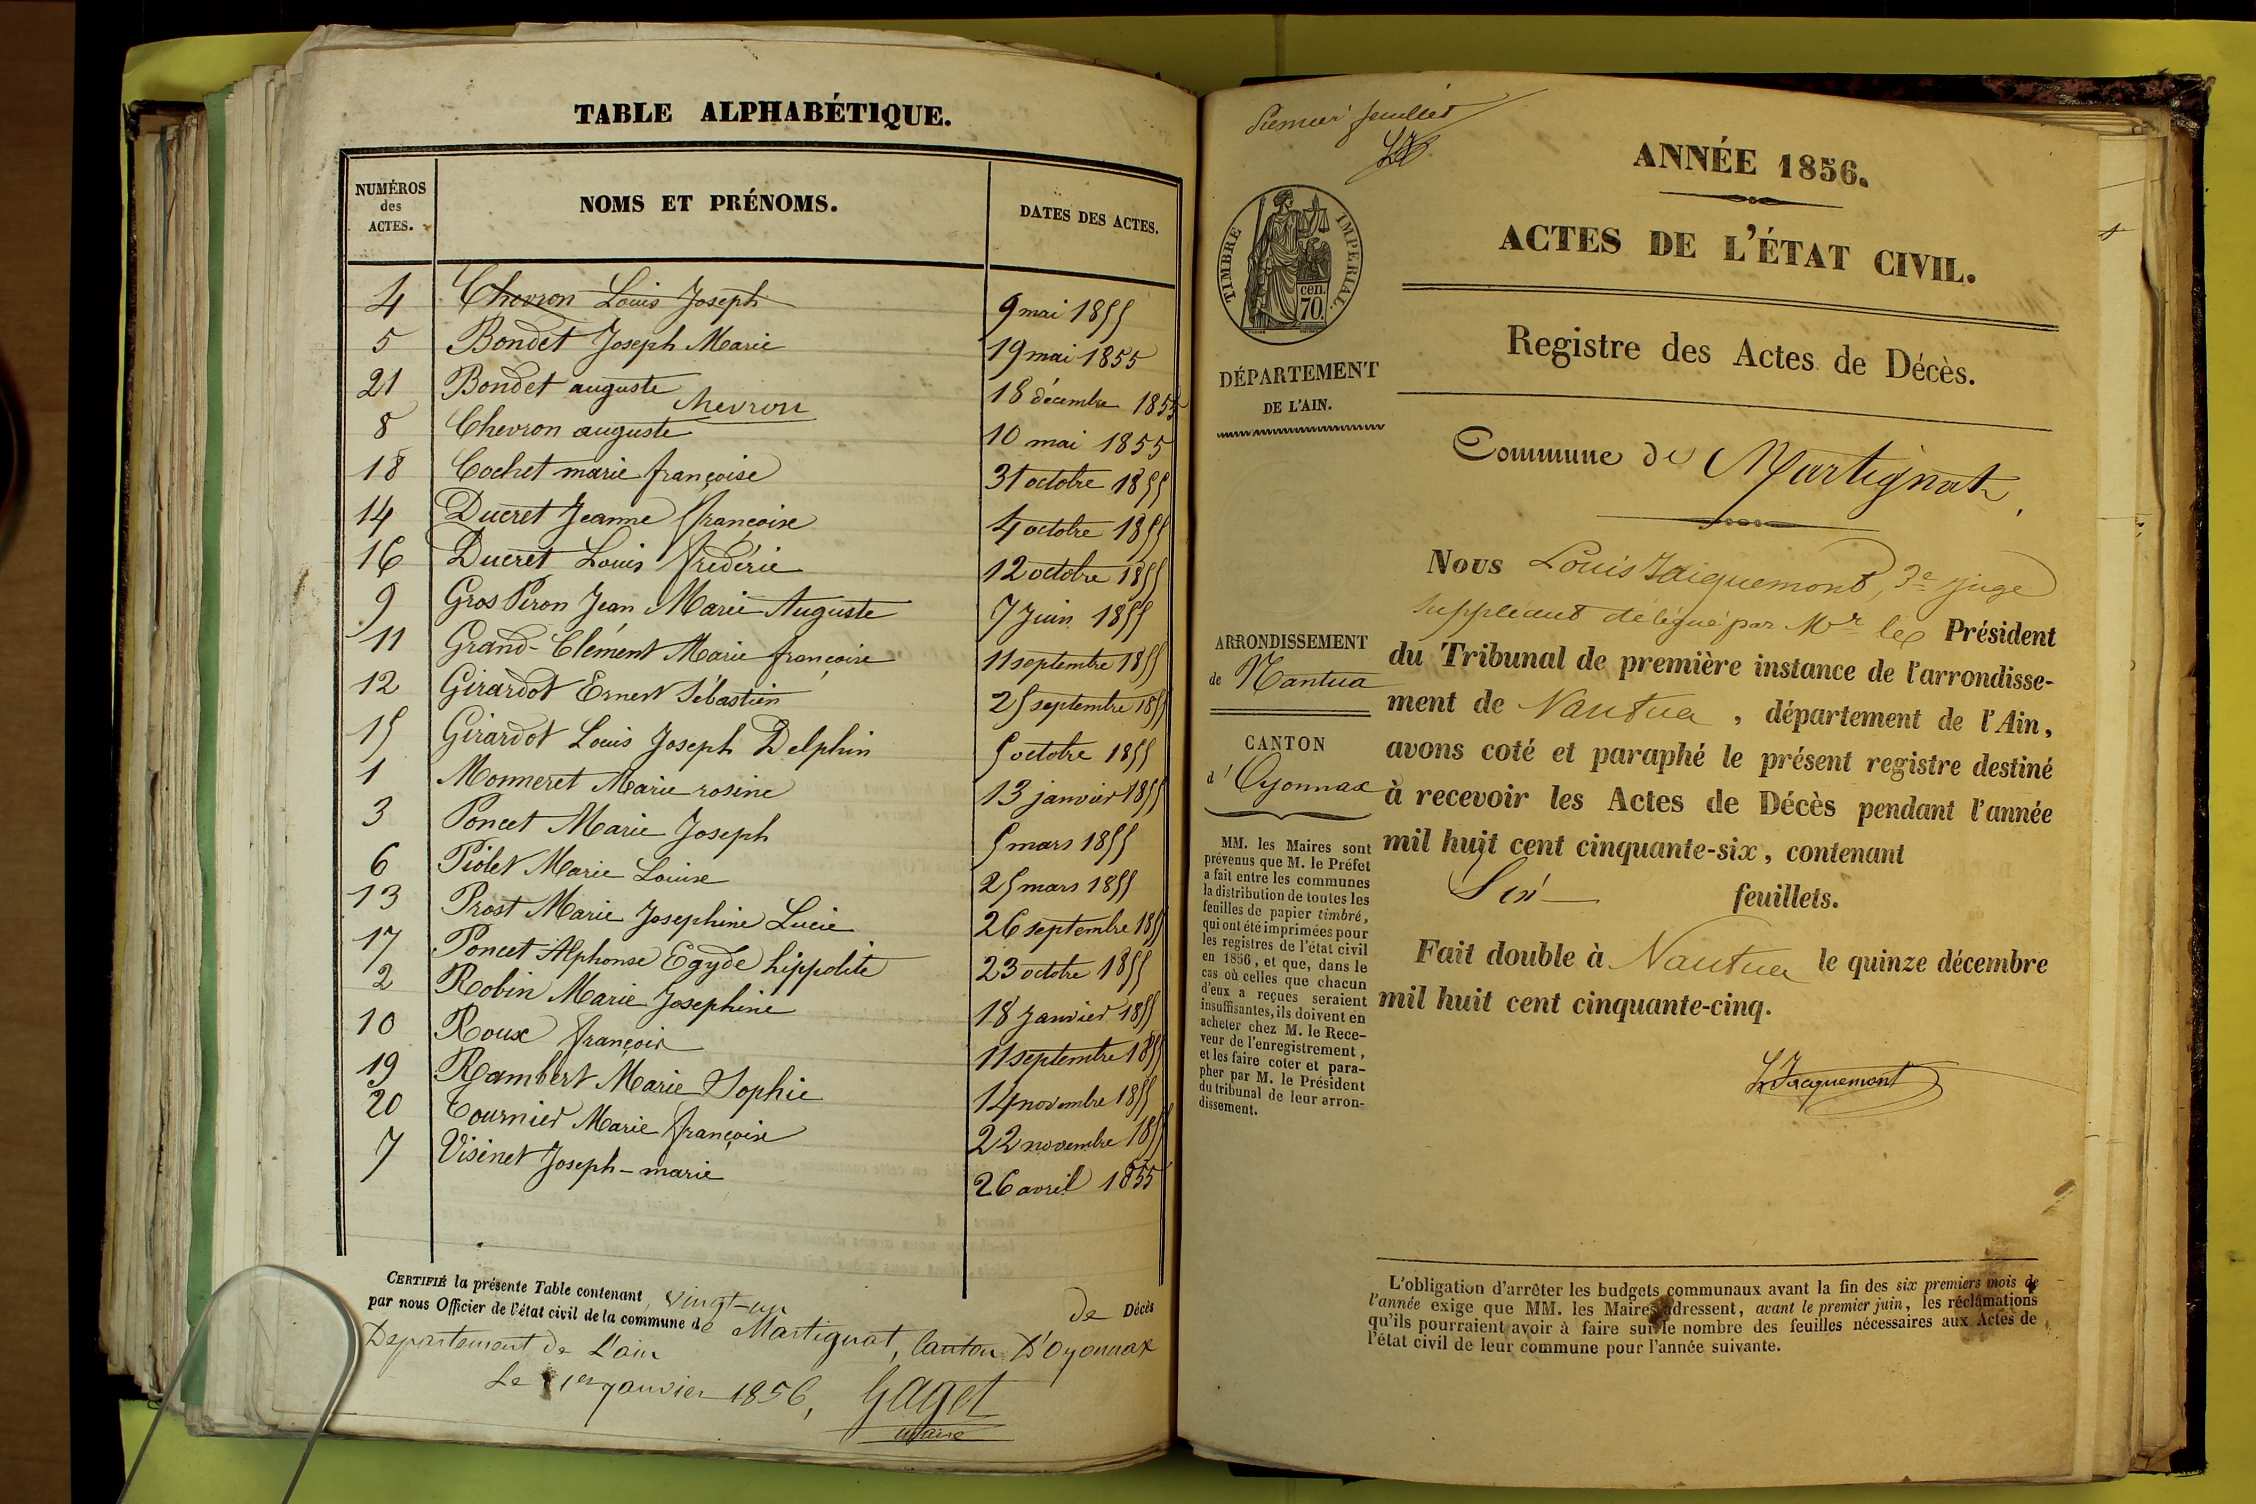 TABLE ALPHABÉTIQUE.
NUMÉROS des ACTES.
NOMS ET PRÉNOMS.
DATES DES ACTES.
4 Chevron Louis Joseph 9 mai 1855
5 Bondet Joseph Marie 19 mai 1855
21 Bondet auguste 18 décembre 1855
Chevron
8 Chevron auguste 10 mai 1855
18 Cochet marie françoise 31 octobre 1855
14 Ducret Jeanne françoise 4 octobre 1855
16 Ducret Louis frédéric 12 octobre 1855
9 Gros Piron Jean Marie Auguste 7 Juin 1855
11 Grand-Clément Marie françoise 11 septembre 1855
12 Girardot Ernest Sébastien 25 septembre 1855
15 Girardot Louis Joseph Delphin 5 octobre 1855
1 Monneret Marie rosine 13 janvier 1855
3 Poncet Marie Joseph 5 mars 1855
6 Piolet Marie Louise 25 mars 1855
13 Prost Marie Josephine Lucie 26 septembre 1855
17 Poncet Alphonse Egyde hippolite 23 octobre 1855
2 Robin Marie Josephine 18 Janvier 1855
10 Roux françois 11 septembre 1855
19 Rambert Marie Sophie 14 novembre 1855
20 Tournier Marie françoise 22 novembre 1855
7 Visinet Joseph-marie 26 avril 1855
CERTIFIÉ la présente Table contenant vingt-un de Décès
par nous Officier de l'état civil de la commune de Martignat, Canton D'Oyonnax
Departement de L'ain
Le 1er Janvier 1856, Gaget
maire
Premier feuillet
LJ
TIMBRE IMPERIAL
cen.
70.
DÉPARTEMENT
DE L'AIN.
ARRONDISSEMENT
de Nantua
CANTON
d'Oyonnax
MM. les Maires sont
prévenus que M. le Préfet
a fait entre les communes
la distribution de toutes les
feuilles de papier timbré,
qui ont été imprimées pour
les registres de l'état civil
en 1856, et que, dans le
cas où celles que chacun
d'eux a reçues seraient
insuffisantes, ils doivent en
acheter chez M. le Rece-
veur de l'enregistrement,
et les faire coter et para-
pher par M. le Président
du tribunal de leur arron-
dissement.
ANNÉE 1856.
ACTES DE L'ÉTAT CIVIL.
Registre des Actes de Décès.
Commune de Martignat,
Nous Louis Jacquemont, 3e juge
suppléant délégué par Mr le Président
du Tribunal de première instance de l'arrondisse-
ment de Nantua, département de l'Ain,
avons coté et paraphé le présent registre destiné
à recevoir les Actes de Décès pendant l'année
mil huit cent cinquante-six, contenant
Six feuillets.
Fait double à Nantua le quinze décembre
mil huit cent cinquante-cinq.
L Jacquemont
L'obligation d'arrêter les budgets communaux avant la fin des six premiers mois de
l'année exige que MM. les Maires adressent, avant le premier juin, les réclamations
qu'ils pourraient avoir à faire sur le nombre des feuilles nécessaires aux Actes de
l'état civil de leur commune pour l'année suivante.